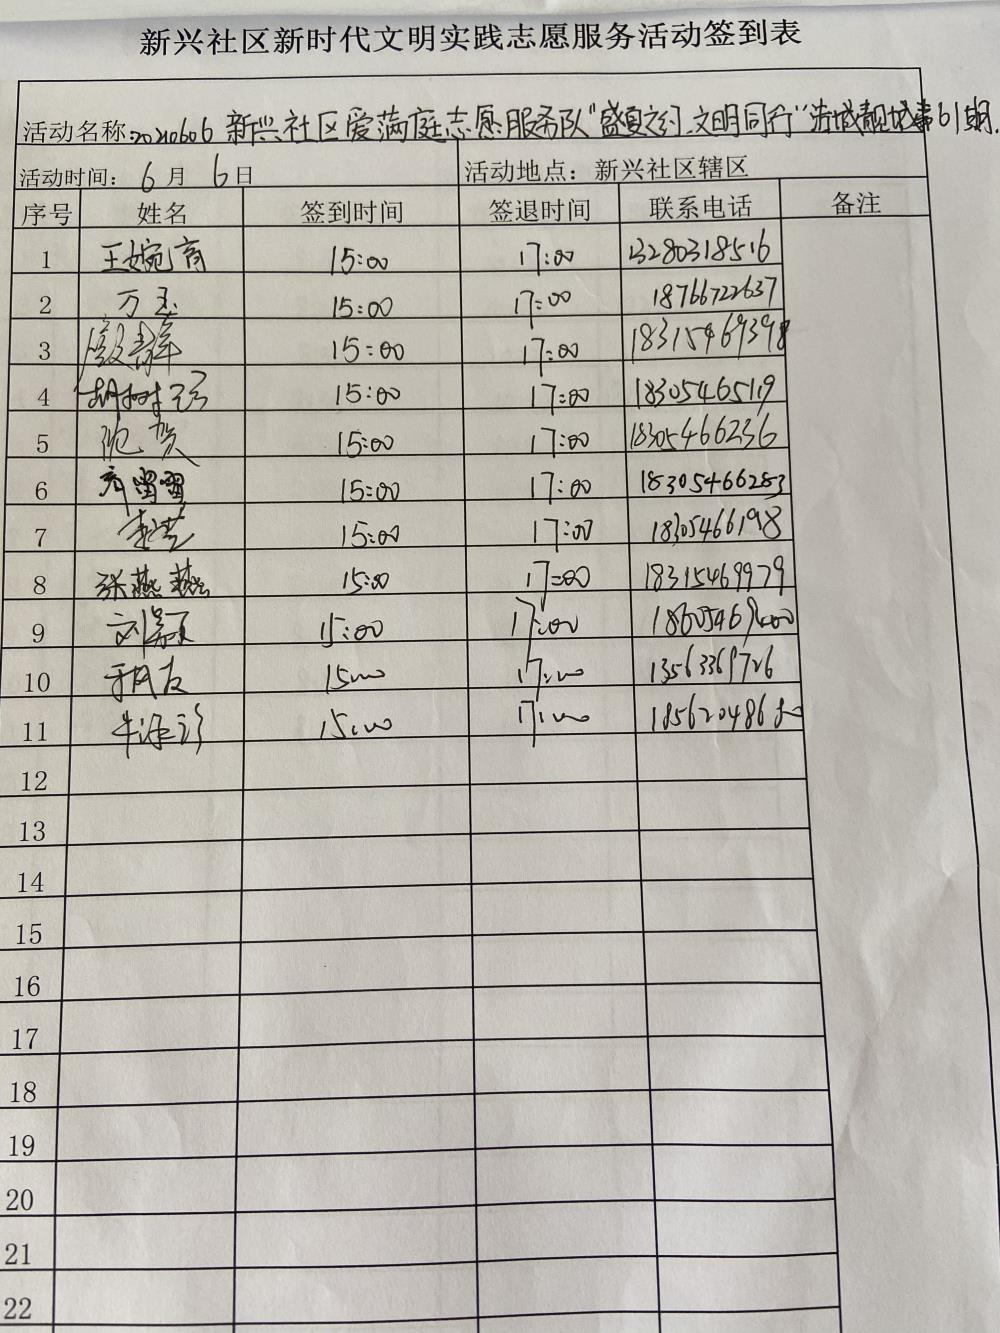 新兴社区新时代文明实践志愿服务活动签到表
活动名称:20210606 新兴社区爱满庭志愿服务队“盛夏之约 文明同行”洁城靓城第61期.
活动时间: 6 月 6 日 活动地点: 新兴社区辖区
序号 姓名 签到时间 签退时间 联系电话 备注
1 15:00 17:00 13280318516
2 万玉 15:00 17:00 18766722637
3 15:00 17:00 18315469398
4 15:00 17:00 18305465119
5 15:00 17:00 18305466236
6 15:00 17:00 18305466283
7 15:00 17:00 18305466198
8 张燕燕 15:00 17:00 18315469979
9 15:00 17:00
10 15:00 17:00 13563369726
11 15:00 17:00
12
13
14
15
16
17
18
19
20
21
22